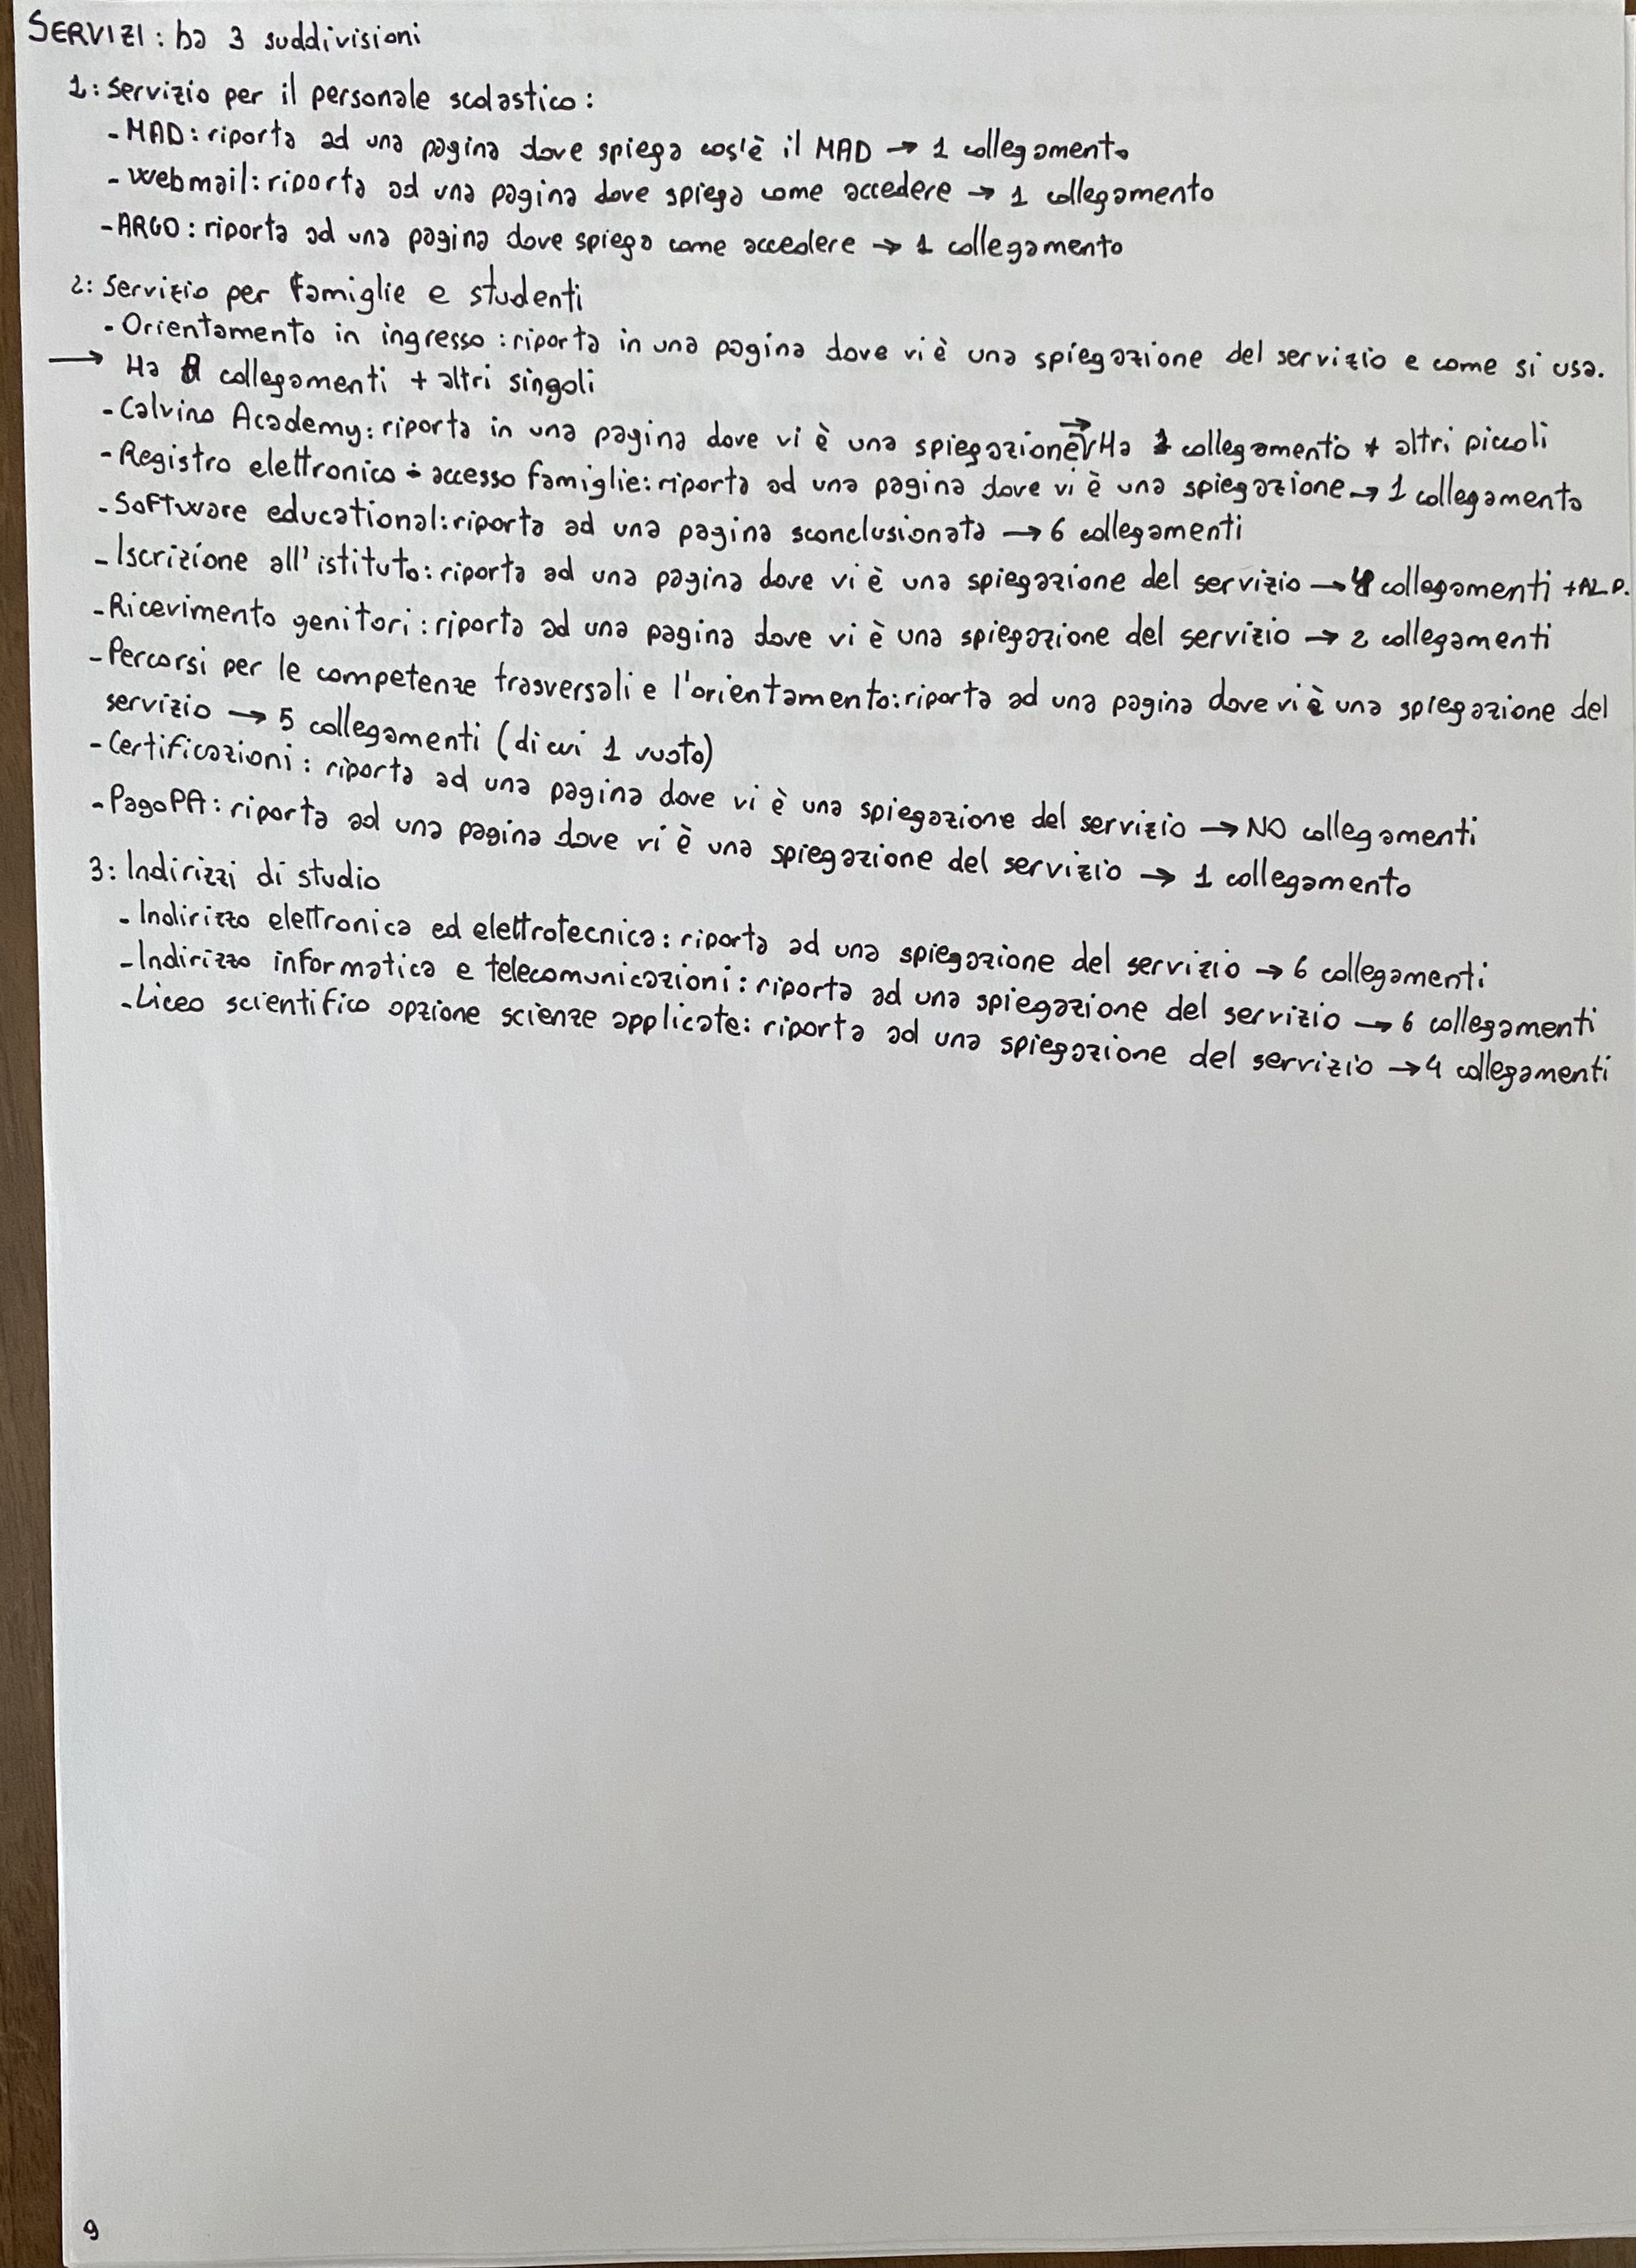 SERVIZI: ha 3 suddivisioni
1: Servizio per il personale scolastico:
- MAD: riporta ad una pagina dove spiega cos'è il MAD → 1 collegamento
- Webmail: riporta ad una pagina dove spiega come accedere → 1 collegamento
- ARGO: riporta ad una pagina dove spiega come accedere → 1 collegamento
2: Servizio per famiglie e studenti
- Orientamento in ingresso: riporta in una pagina dove vi è una spiegazione del servizio e come si usa.
→ Ha collegamenti + altri singoli
- Calvino Academy: riporta in una pagina dove vi è una spiegazione → Ha 1 collegamento + altri piccoli
- Registro elettronico - accesso famiglie: riporta ad una pagina dove vi è una spiegazione → 1 collegamento
- Software educational: riporta ad una pagina sconclusionata → 6 collegamenti
- Iscrizione all'istituto: riporta ad una pagina dove vi è una spiegazione del servizio → collegamenti + AL.P.
- Ricevimento genitori: riporta ad una pagina dove vi è una spiegazione del servizio → 2 collegamenti
- Percorsi per le competenze trasversali e l'orientamento: riporta ad una pagina dove vi è una spiegazione del
servizio → 5 collegamenti (di cui 1 vuoto)
- Certificazioni: riporta ad una pagina dove vi è una spiegazione del servizio → NO collegamenti
- PagoPA: riporta ad una pagina dove vi è una spiegazione del servizio → 1 collegamento
3: Indirizzi di studio
- Indirizzo elettronica ed elettrotecnica: riporta ad una spiegazione del servizio → 6 collegamenti
- Indirizzo informatica e telecomunicazioni: riporta ad una spiegazione del servizio → 6 collegamenti
- Liceo scientifico opzione scienze applicate: riporta ad una spiegazione del servizio → 4 collegamenti
9